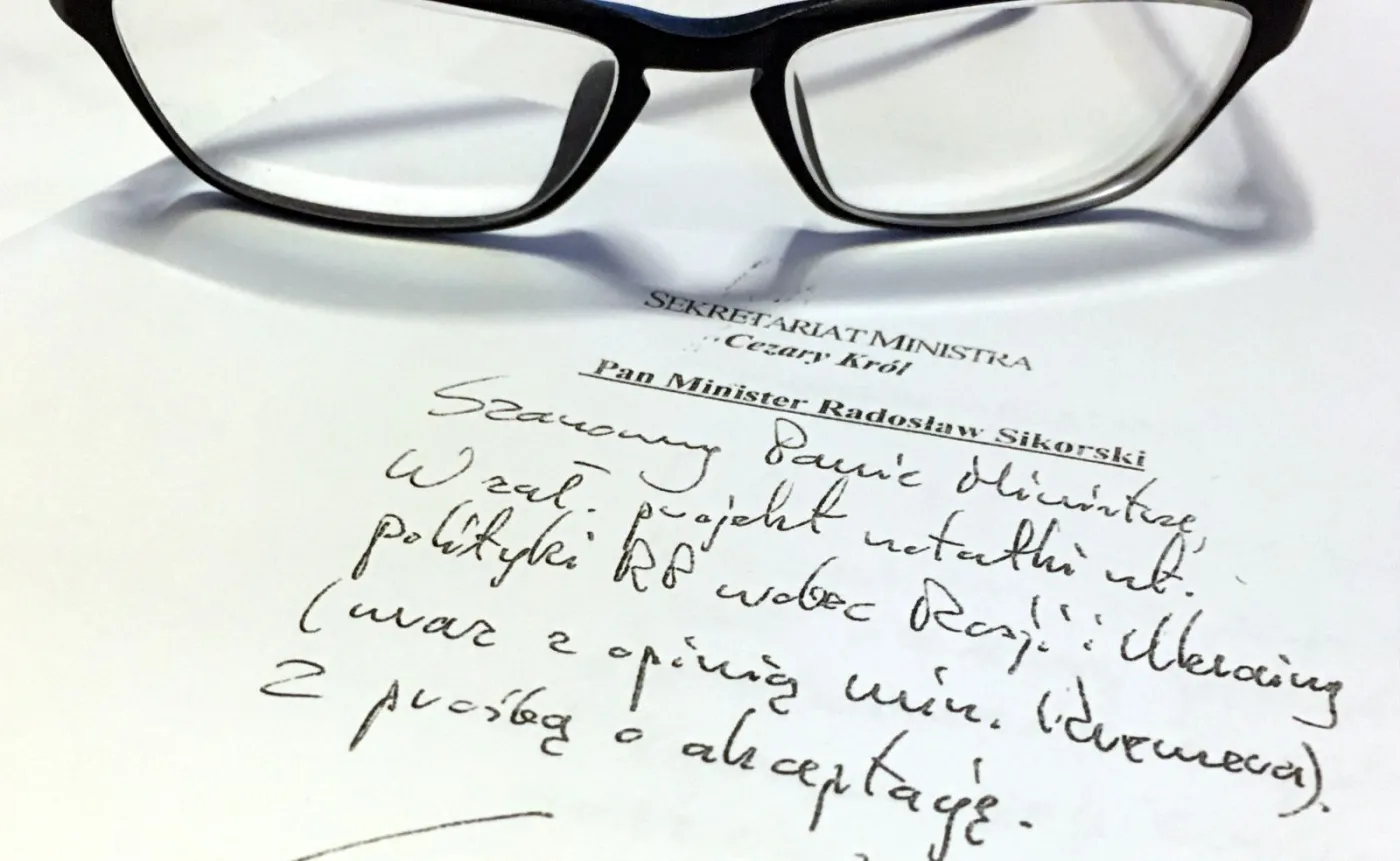 SEKRETARIAT MINISTRA
Cezary Król
Pan Minister Radosław Sikorski
Szanowny Panie Ministrze,
W zał. projekt notatki nt.
polityki RP wobec Rosji i Ukrainy
(wraz z opinią min. Kremera).
Z prośbą o akceptację.